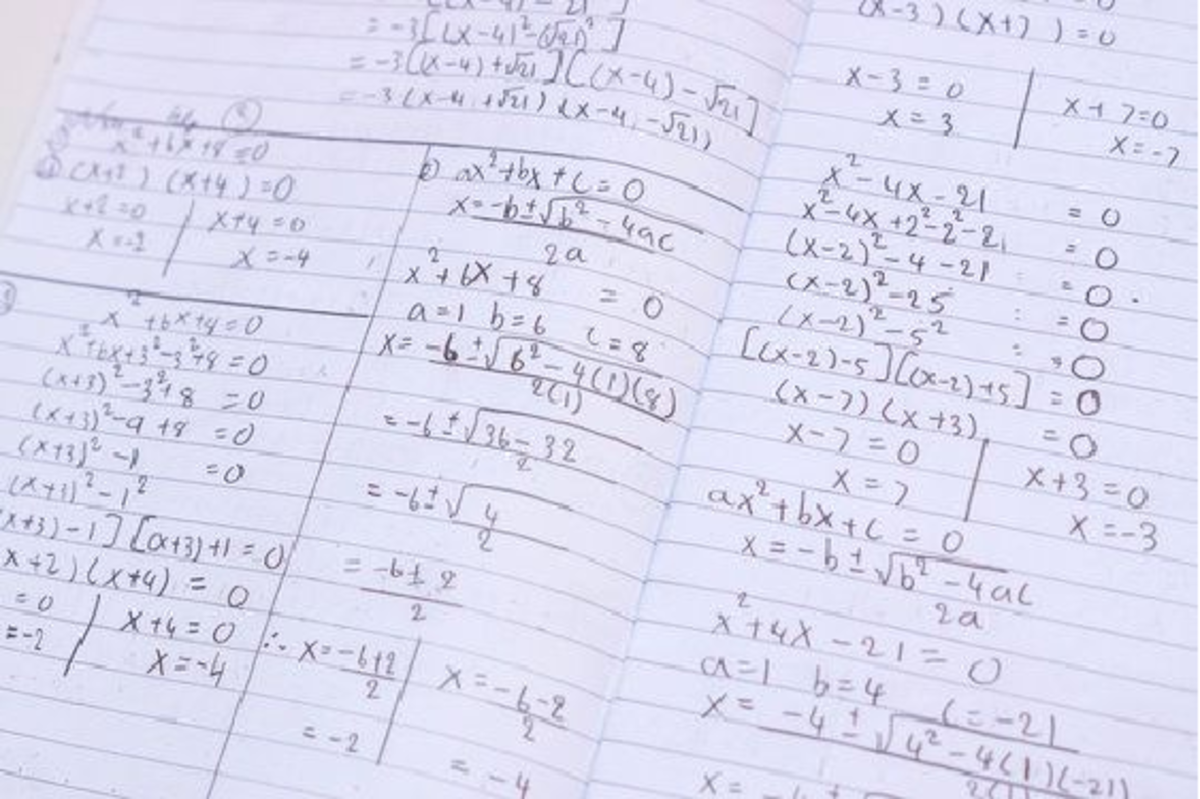 = -3[(x-4)²-(√21)²]
= -3[(x-4)+√21][(x-4)-√21]
= -3(x-4+√21)(x-4-√21)
x²+6x+8=0
(x+2)(x+4)=0
x+2=0 | x+4=0
x=-2 | x=-4
x²+6x+8=0
x²+6x+3²-3²+8=0
(x+3)²-3²+8=0
(x+3)²-9+8=0
(x+3)²-1=0
(x+3)²-1²
x+3)-1][(x+3)+1=0
x+2)(x+4)=0
=0 | x+4=0
=-2 | x=-4
ax²+bx+c=0
x=-b±√b²-4ac
2a
x²+6x+8=0
a=1 b=6 c=8
x=-6±√6²-4(1)(8)
2(1)
=-6±√36-32
2
=-6±√4
2
=-6±2
2
∴ x=-6+2 | x=-6-2
2 | 2
=-2 | =-4
(x-3)(x+7)=0
x-3=0 | x+7=0
x=3 | x=-7
x²-4x-21=0
x²-4x+2²-2²-21=0
(x-2)²-4-21=0
(x-2)²-25=0
(x-2)²-5²=0
[(x-2)-5][(x-2)+5]=0
(x-7)(x+3)=0
x-7=0 | x+3=0
x=7 | x=-3
ax²+bx+c=0
x=-b±√b²-4ac
2a
x²+4x-21=0
a=1 b=4 c=-21
x=-4±√4²-4(1)(-21)
2(1)